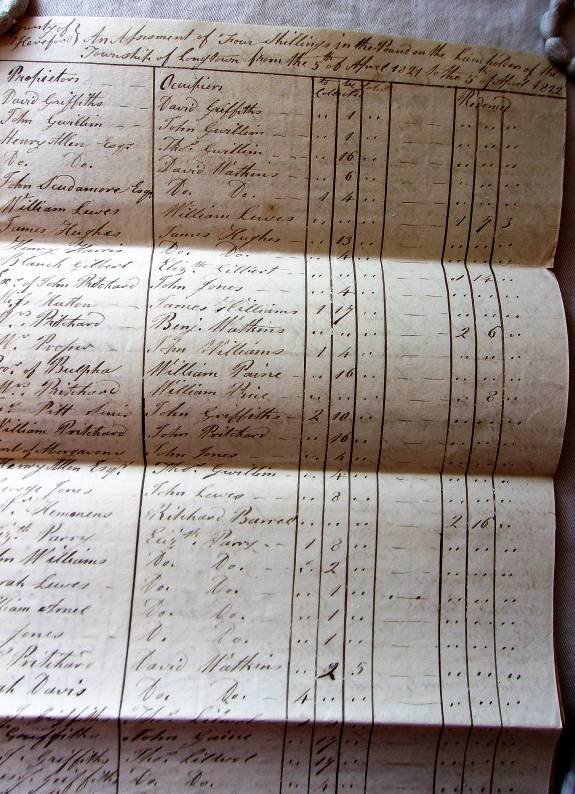 County of Hereford} An Assessment of Four Shillings in the Pound on the Landholders of the
Township of Longtown from the 5th of April 1821 to the 5th of April 1822
Proprietors Occupiers to be Collected Redeemed
David Griffiths David Griffiths .. 1 .. .. .. ..
John Gwillim John Gwillim .. 1 .. .. .. ..
Henry Allen Esqr Thos. Gwillim .. 16 .. .. .. ..
Do. Do. David Watkins .. 6 .. .. .. ..
John Scudamore Esqr Do. Do. 1 4 .. .. .. ..
William Lewes William Lewes .. .. .. 1 7 3
James Hughes James Hughes .. 13 .. .. .. ..
Harris Do. Do. .. 4 .. .. .. ..
Blanch Gilbert Elizth Gilbert .. .. .. 1 14 ..
of John Pritchard John Jones .. 4 .. .. .. ..
Hutton James Williams 1 17 .. .. .. ..
Pritchard Benj. Watkins .. .. .. 2 6 ..
Prosser John Williams 1 4 .. .. .. ..
of Bulpha William Paine .. 16 .. .. .. ..
Pritchard William Price .. .. .. .. 8 ..
Pitt Senior John Griffiths 2 10 .. .. .. ..
William Pritchard John Pritchard .. 16 .. .. .. ..
of Morgavens John Jones .. 4 .. .. .. ..
Henry Allen Esqr Thos. Gwillim .. 4 .. .. .. ..
George Jones John Lewes .. 8 .. .. .. ..
Hemmens Ritchard Barrel .. .. .. 2 16 ..
Parry Elizth Parry 1 8 .. .. .. ..
Williams Do. Do. .. 2 .. .. .. ..
Lewes Do. Do. .. 1 .. .. .. ..
Do. Do. .. 1 .. .. .. ..
Jones D. Do. .. 1 .. .. .. ..
Pritchard David Watkins .. 2 5 .. .. ..
Davis Do. Do. 4 .. .. .. .. ..
Griffiths Thos.
Griffiths John Gaine .. 17 .. .. .. ..
Griffiths Thos. .. 17 .. .. .. ..
Griffiths Do. Do. .. 4 .. .. .. ..